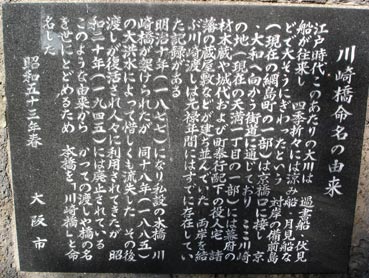 川崎橋命名の由来
江戸時代、このあたりの大川は 過書船、伏見
船が往来し、四季折々には涼み船、月見船な
どでたいそうにぎわったという 対岸の備前島
(現在の網島町の一部)は京橋口に接し、京
・大和へ向かう街道に通じており ここ川崎
の地(現在の天満一丁目の一部)には幕府の
材木蔵や城代および町奉行配下の役人宅 諸
藩の蔵屋敷などが建ち並んでいた 両岸を結
ぶ川崎渡しは元禄年間にはすでに存在してい
た記録がある
明治十年(一八七七)になり私設の木橋「川
崎橋」が架けられたが 同十八年(一八八五)
の大洪水によって惜しくも流失した その後
渡しが復活され人々に利用されてきたが 昭
和二十年(一九四五)には廃止されている
このような由来から かつての渡しや橋の名
を世にとどめるため 本橋を「川崎橋」と命
名した
昭和五十三年春 大阪市